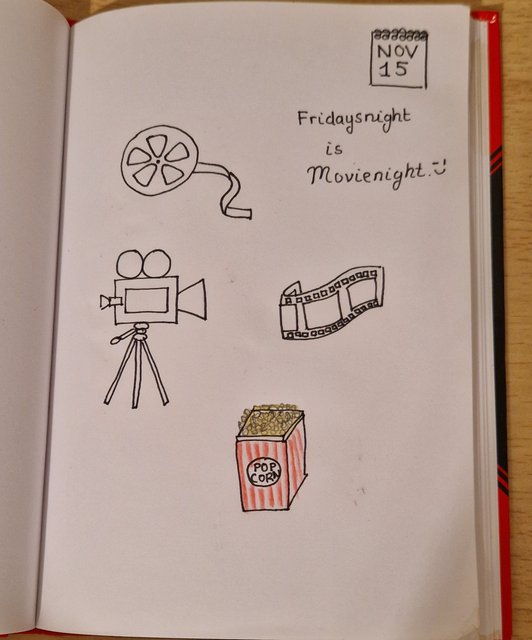 NOV
15
Fridaysnight
is
Movienight.
POP
CORN